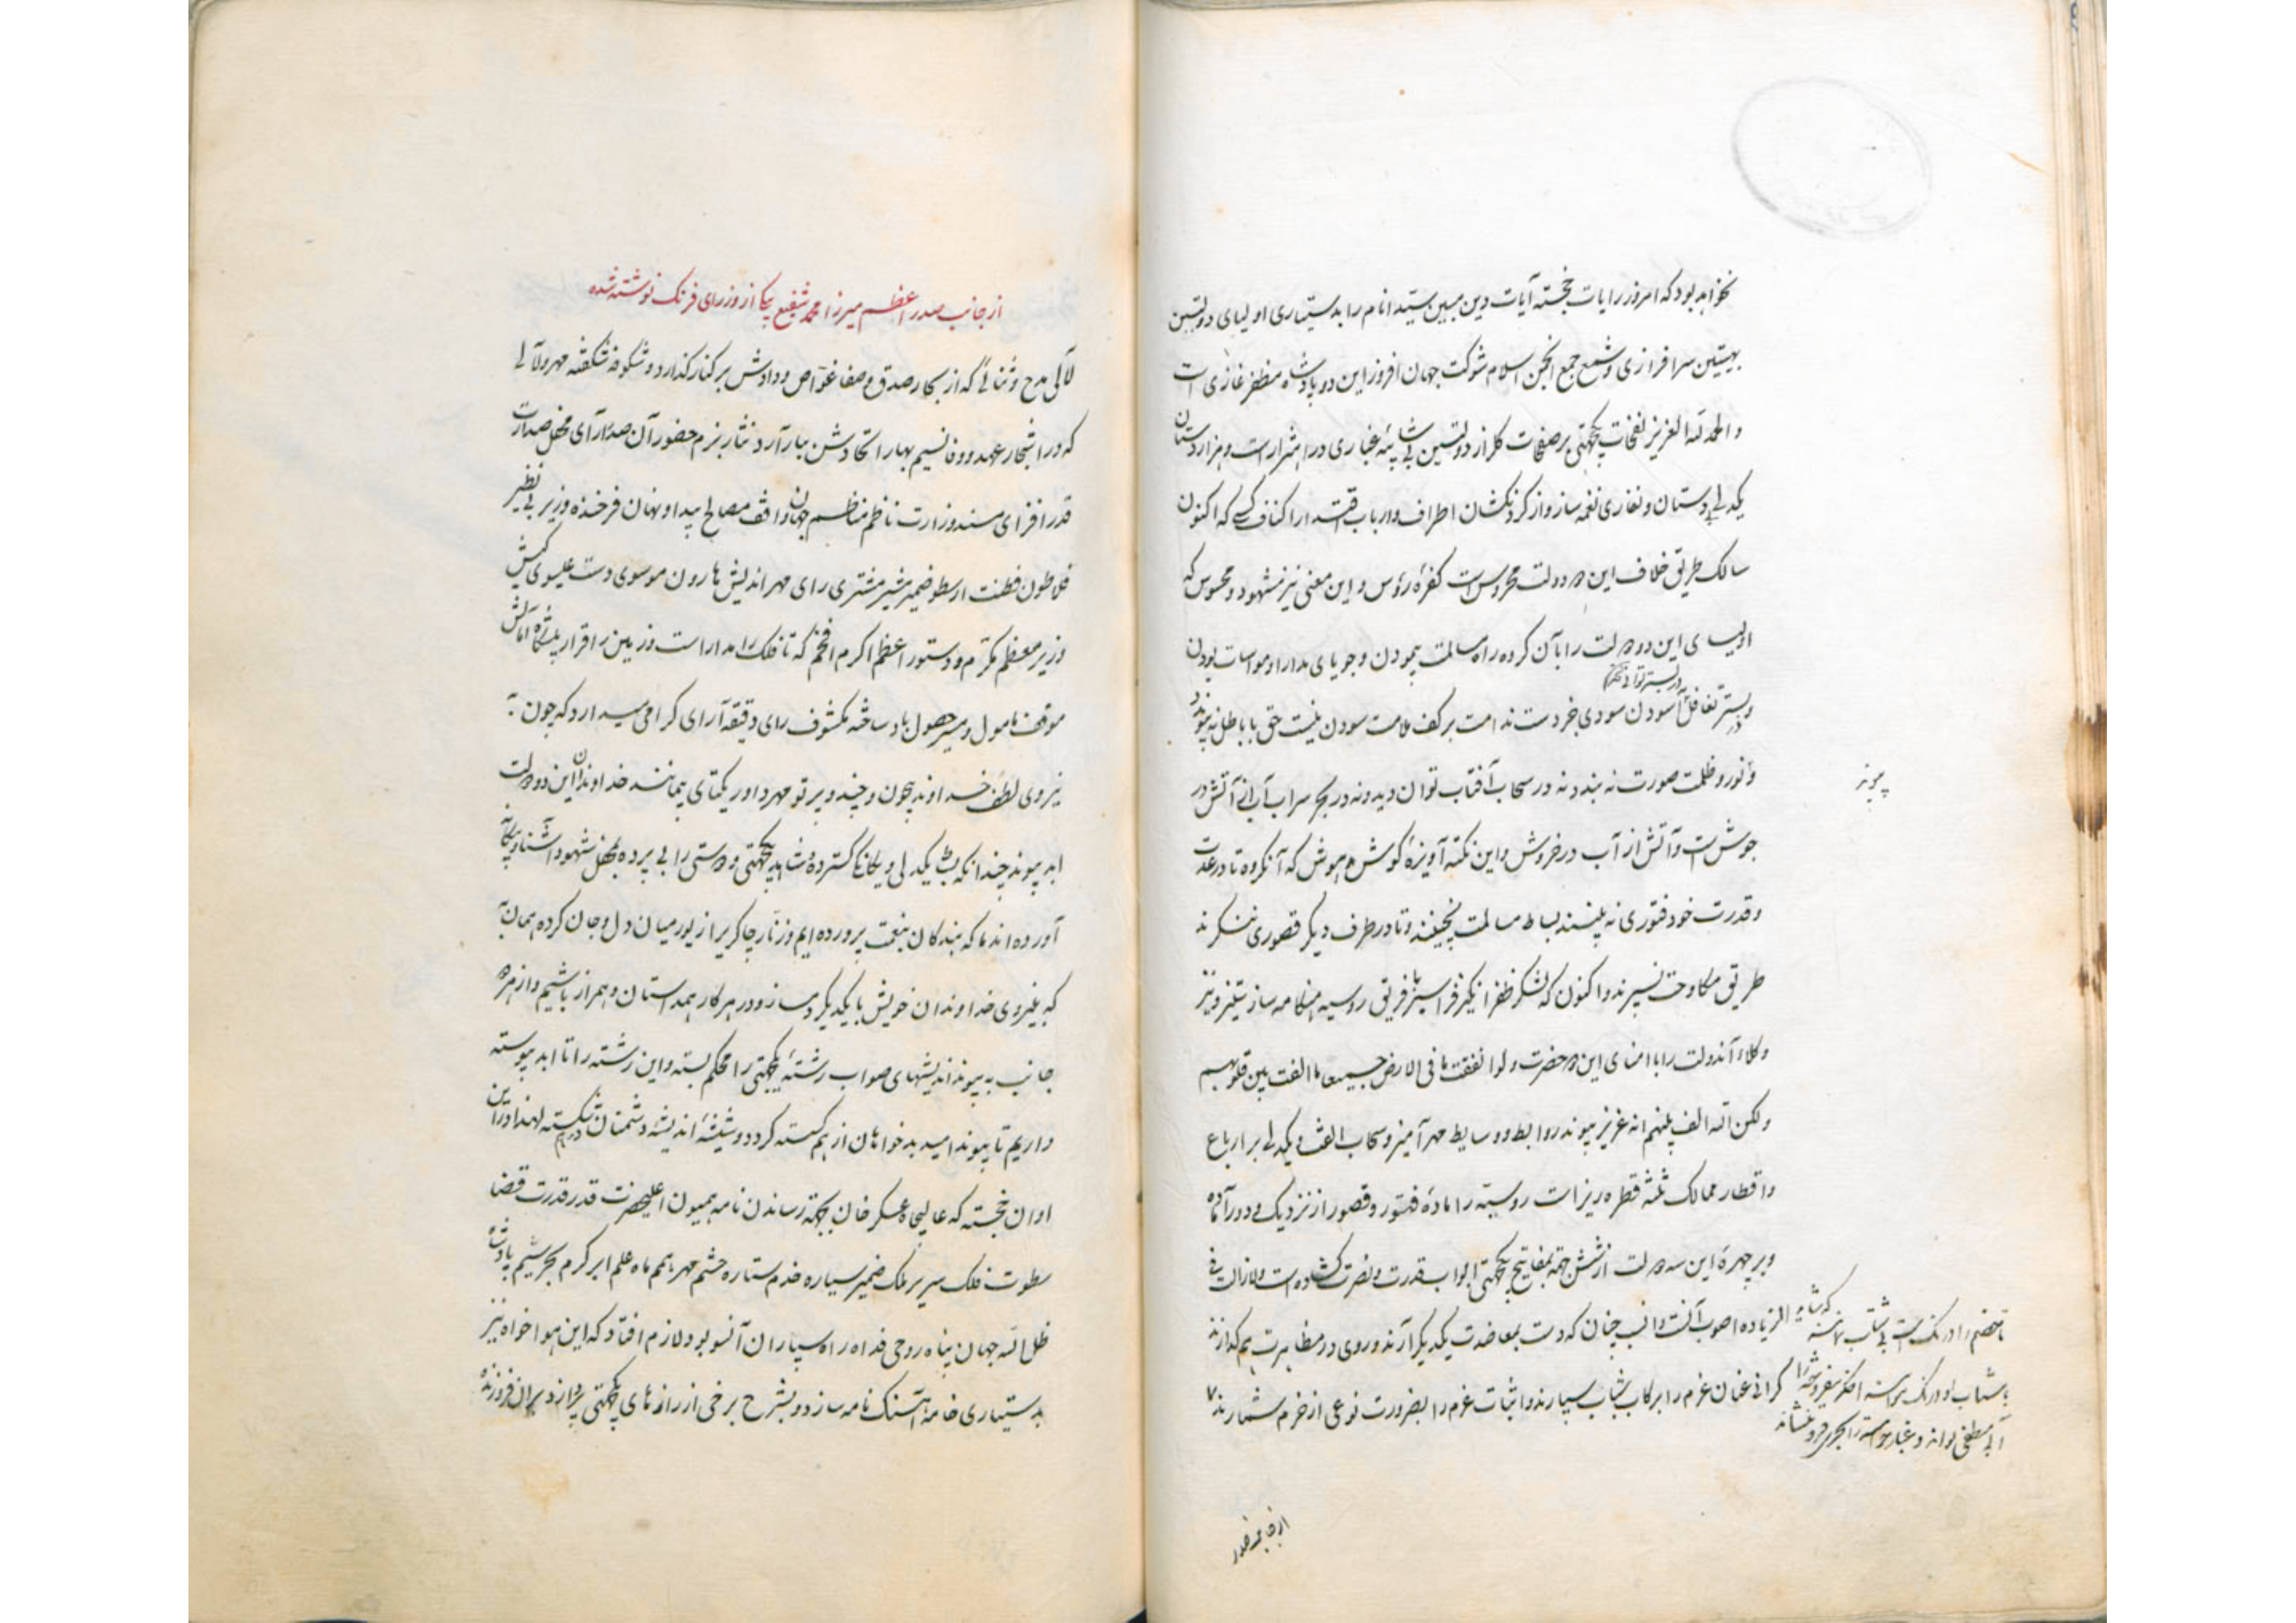 نخواهد بود که امروز رایات خجسته آیات دین مبین سید انام را بدستیاری اولیای دولتین
بهیتین سرافرازی و شمع جمع انجمن اسلام شوکت جهان افروز این دو پادشاه مظفر غازی است
و الحمد لله العزیز نفحات یکجهتی بر صفحات گلزار دولتین بی شائبه غباری در اهتزاز است و هزاردستان
یکدلی بدستان و نغاری نغمه ساز و از گردنکشان اطراف و ارباب اقتدار اکناف کسی که اکنون
سالک طریق خلاف این دو دولت محروس است کفره روس و این معنی نیز مشهود و محسوس که
اولیای این دو دولت را با آن گروه راه مسالمت پیمودن و جویای مدارا و مواسات بودن
و در بستر تغافل آسودن سودی بجز دست ندامت بر کف ملامت سودن نیست حق با باطل نه پیوندد
و نور و ظلمت صورت نه بندد نه در سحاب آفتاب توان دید و نه در بحر سراب آب از آتش در
پیوند
جوش است و آتش از آب در خروش و این نکته آویزه گوش هوش که آنگروه تا در عدت
و قدرت خود فتوری نه بینند بساط مسالمت نچینند و تا در طرف دیگر قصوری ننگرند
طریق مکاوحت نسپرند و اکنون که لشکر ظفر انگیز فرانسیز با فریق روسیه هنگامه ساز ستیز و نیز
وکلاء آندولت را با امنای این دو حضرت و لو انفقت ما فی الارض جمیعا ما الفت بین قلوبهم
و لکن الله الف بینهم انه عزیز پیوند روابط و وسایط مهر آمیز و سحاب الفت و یکدلی بر ارباع
و اقطار ممالک ثلثه قطره ریز است روسیه را ماده فتور و قصور از نزدیک و دور آماده
و بر چهره این سه دولت از شش جهة بمفاتیح یکجهتی ابواب قدرت و نصرت گشاده است و لازالت فی
الزیاده اصوب آنست و انسب چنان که دست بمعاضدت یکدیگر آرند و روی در مظاهرت هم گذارند
گرانی عنان عزم را برکاب شتاب سپارند و اثبات عزم را بضرورت نوعی از حزم شمارند
تا خصم را درنگ است بی شتاب
از جانب صدر
از جانب صدر اعظم میرزا محمد شفیع بیکی از وزرای فرنگ نوشته شده
لآلی مدح و ثنائی که از بحار صدق و صفا غواص ودادش بر کنار گذارد و شکوفه شکفته مهر و ولائی
که در اشجار عهد و وفا نسیم بهار اتحادش ببار آرد نثار بزم حضور آن صدرآرای محفل صدارت
قدر افزای مسند وزارت ناظم مناظم جهان واقف مصالح پیدا و نهان فرخنده وزیر بی نظیر
فلاطون فطنت ارسطو ضمیر مشیر مشتری رای مهر اندیش هارون موسوی دست عیسوی کیش
وزیر معظم مکرم و دستور اعظم اکرم افخم که تا فلک را مدار است و زمین را قرار پیشگاه آمالش
موقف مامول و مسیر حصول باد ساخته مکشوف رای دقیقه آرای گرامی میدارد که چون به
نیروی لطف خداوند بیچون و چند و پرتو مهر داور یکتای بیمانند خداوندان این دو دولت
ابد پیوند چندانکه بساط یکدلی و یگانگی گسترده و شاهد یکجهتی و دوستی را بی پرده بمحفل شهود آشنا و بیگانه
آورده اند ما که بندگان بنعمت پرورده ایم و زنار چاکری را زیور میان دل و جان کرده همان به
که به نیروی خداوندان خویش با یکدیگر دمساز و در هر کار همداستان و همراز باشیم و از هر دو
جانب به پیوند اندیشهای صواب رشته یکجهتی را محکم بسته و این رشته را تا ابد پیوسته
داریم تا پیوند امید بدخواهان از هم گسسته گردد و شیشه اندیشه دشمنان درهم شکسته لهذا در این
اوان خجسته که عالیجاه عسکر خان بجهة رساندن نامه همیون اعلیحضرت قدر قدرت قضا
سطوت فلک سریر ملک ضمیر سیاره خدم ستاره حشم مهر همم ماه علم ابر کرم بحر شیم پادشاه
ظل الله جهان پناه روحی فداه راه سپار آن آنسو بود لازم افتاد که این هواخواه نیز
بدستیاری خامه آهنگ نامه سازد و بشرح برخی از رازهای یکجهتی پردازد بر آن فروزنده